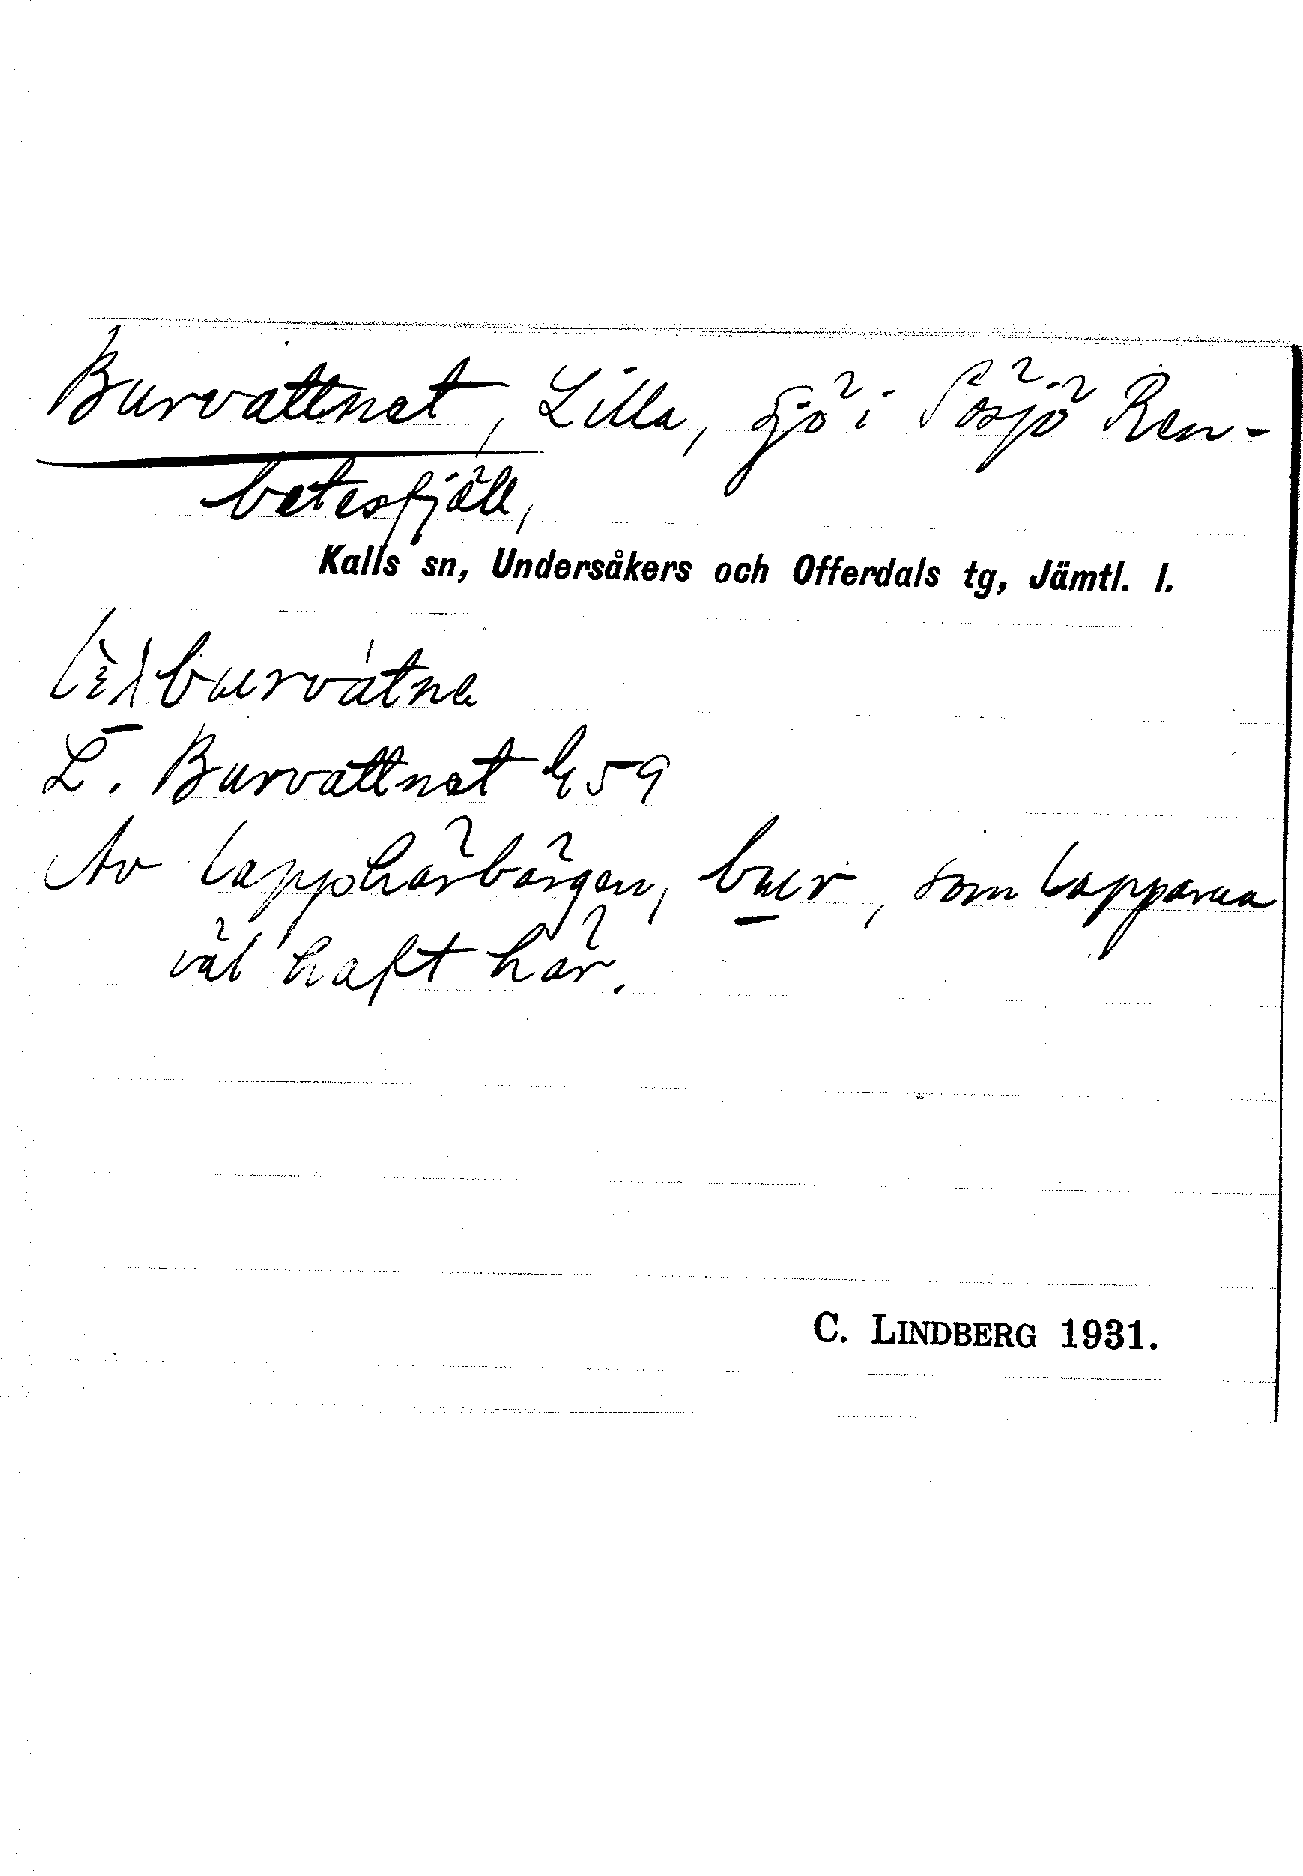 Burvattnet, Lilla, sjö i Sösjö Ren-
betesfjäll,
Kalls sn, Undersåkers och Offerdals tg, Jämtl. l.
L. Burvattnet k 59
Av lapphärbärgen, buer, som lapparna
väl haft här.
C. LINDBERG 1931.